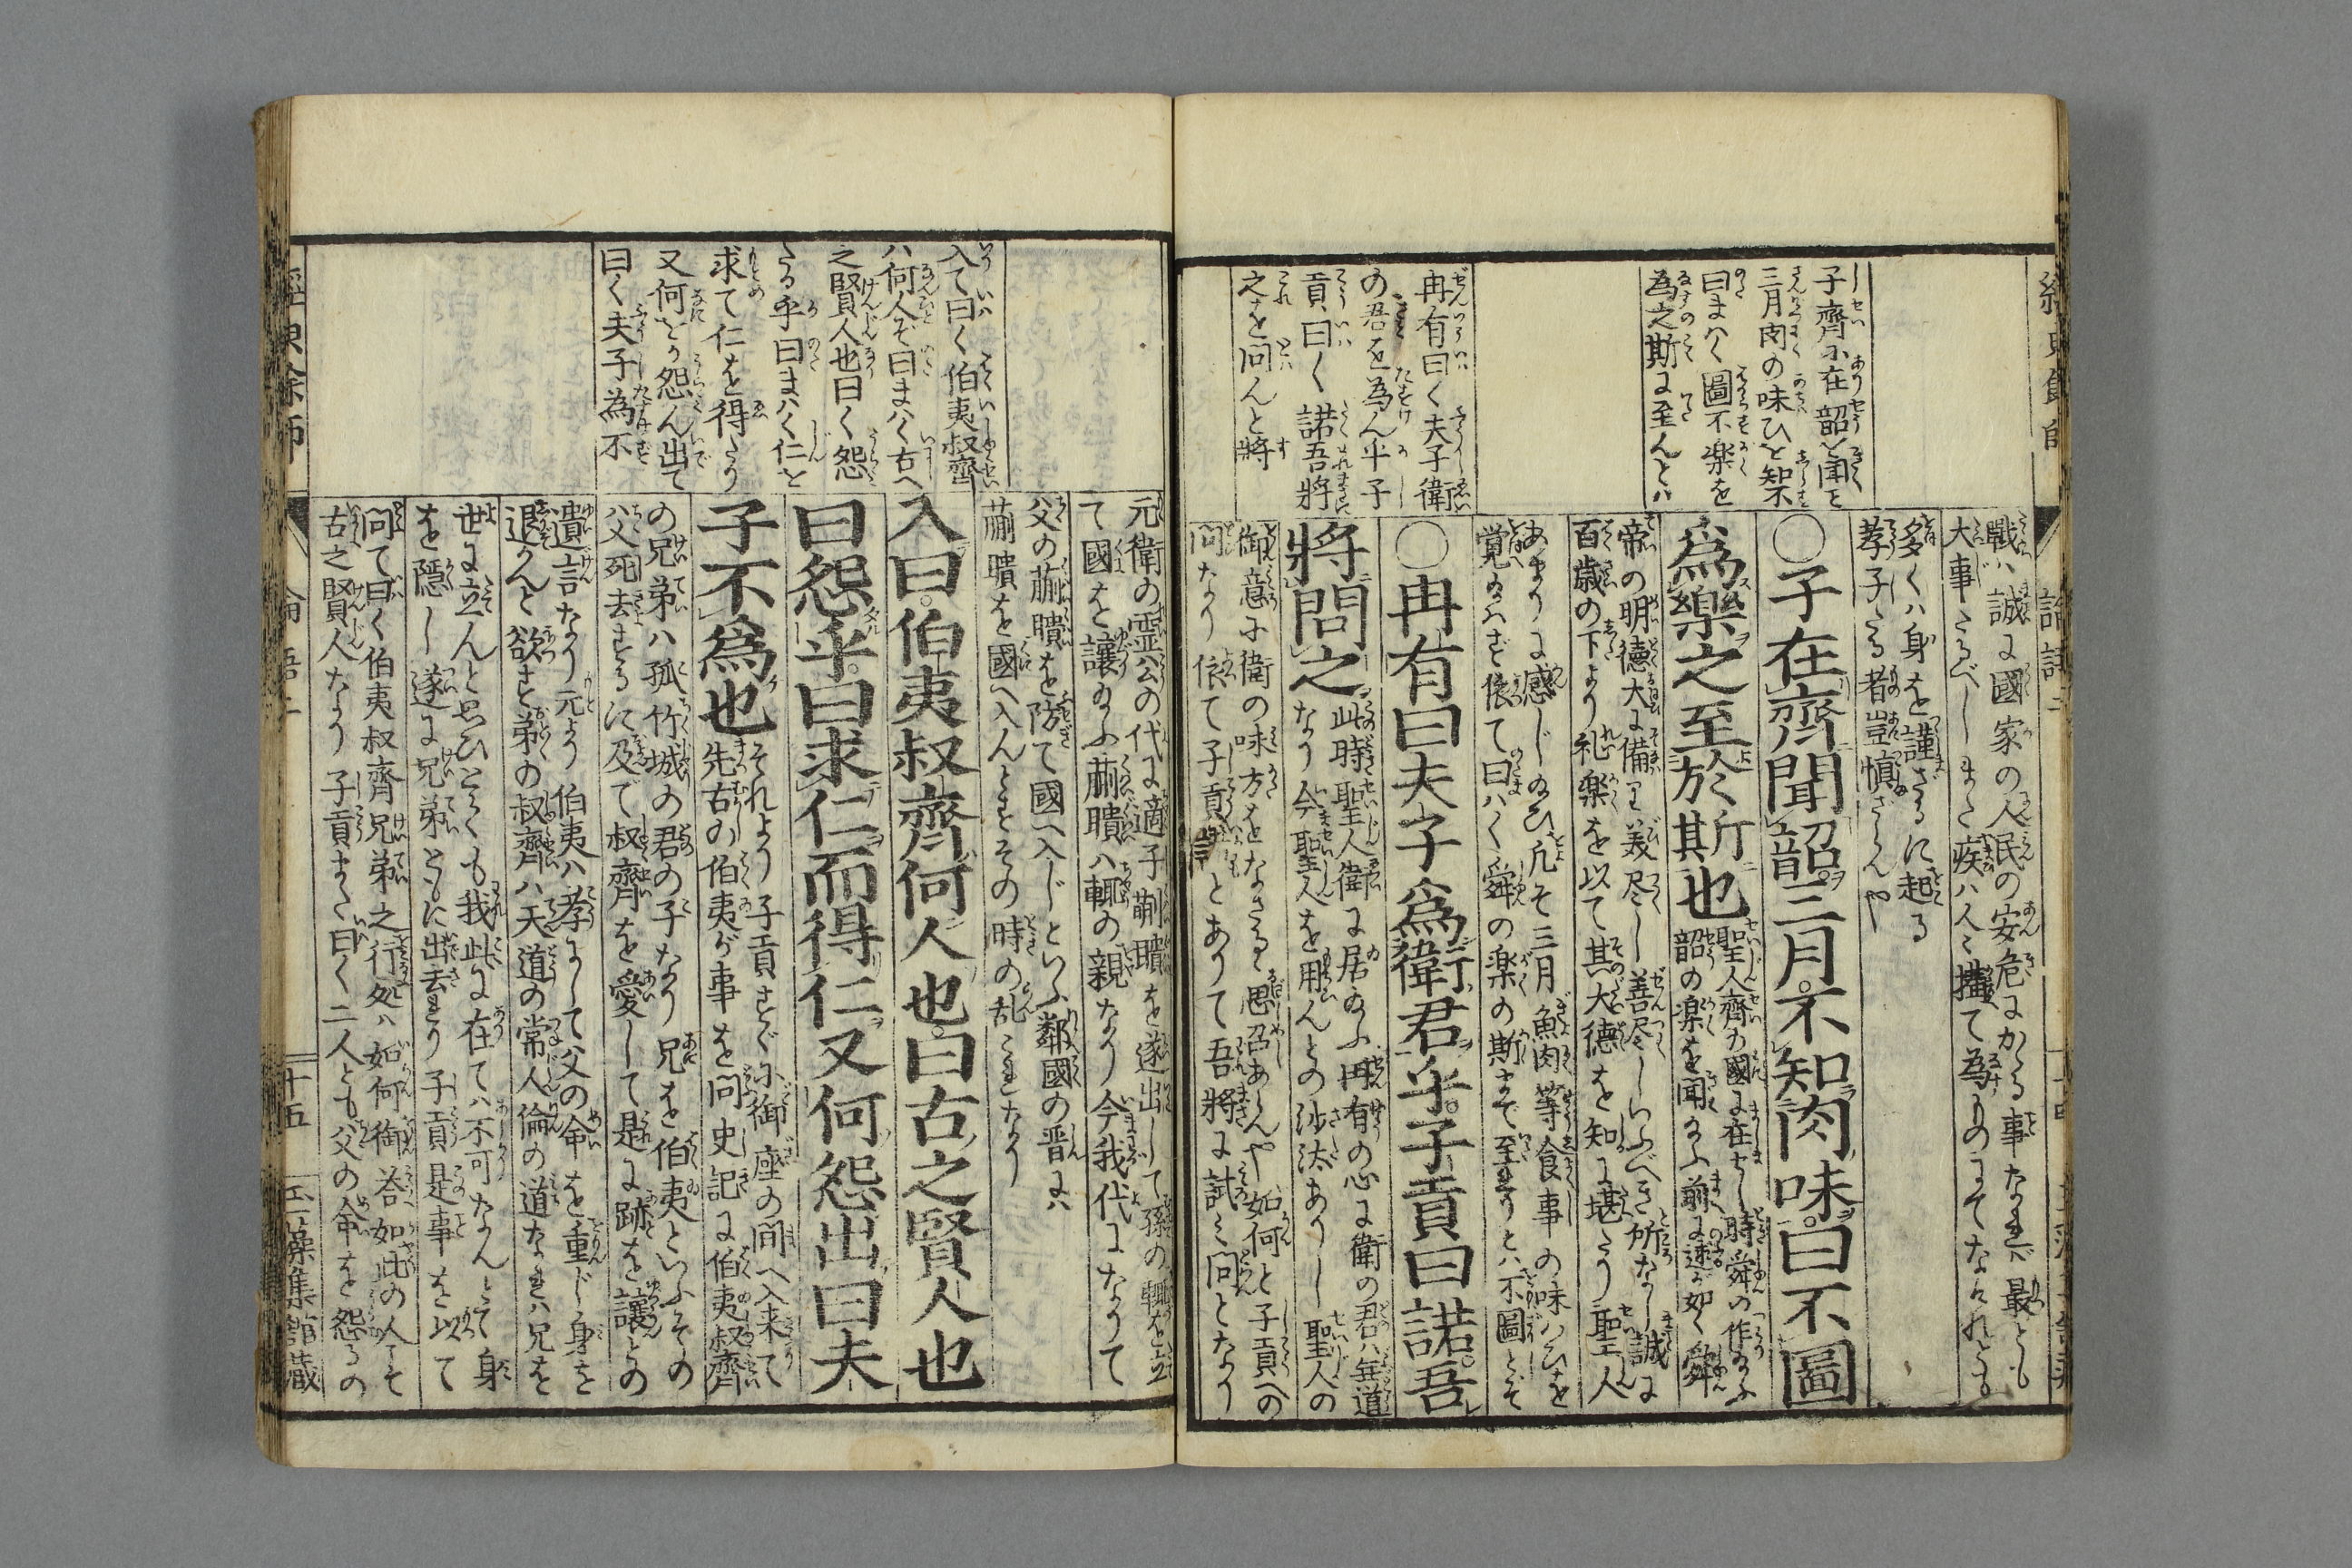 子齊に在韶を聞こと
三月肉の味ひを知ず
曰まはく圖不樂を
為之斯に至んとハ
冉有曰く夫子衛
の君を為ん乎子
貢曰く諾吾將
之を問んと將
戰ハ誠に國家の人民の安危にかゝる事なれバ最とも
大事なるべしまた疾ハ人々
多くハ身を謹ざるに起る
孝子たる者豈慎ざらんや
○子在齊聞韶三月不知肉味曰不圖
爲樂之至於斯也
聖人齊の國に在せし時舜の作給ふ
韶の楽を聞給ふ前に述が如く舜
帝の明徳大に備り美尽し善尽しいふべき所なし誠に
百歳の下より礼楽を以て其大徳を知に堪たり聖人
あまりに感じ給ひ凡そ三月魚肉等食事の味ハひを
覚給ハざ依て曰ハく舜の楽の斯まで至れりとハ不圖とぞ
○冉有曰夫子爲衛君乎子貢曰諾吾
將問之
此時聖人衛に居給ふ冉有の心に衛の君ハ無道
なり今聖人を用んとの沙汰ありし聖人の
御意に衛の味方をなさるゝ思召あらんや如何と子貢への
問なり依て子貢 とありて吾將に試に問となり
入て曰く伯夷叔齊
ハ何人ぞ曰まハく古へ
之賢人也曰く怨
たる乎曰まハく仁を
求て仁を得たり
又何をか怨ん出て
曰く夫子為不
元衛の霊公の代に適子蒯聵を遂出して孫の輒を立
て國を讓給ふ蒯聵ハ輒の親なり今我代になりて
父の蒯聵を防て國へ入じといふ鄰國の晋にハ
蒯聵を國へ入んとすその時の乱これなり
入曰伯夷叔齊何人也曰古之賢人也
曰怨乎曰求仁而得仁又何怨出曰夫
子不爲也
それより子貢すぐに御座の間へ入来て
先古の伯夷が事を問史記に伯夷叔齊
の兄弟ハ孤竹城の君の子なり兄を伯夷といふその
父死去するに及で叔齊を愛して是に跡を讓との
遺言なり元より伯夷ハ孝にして父の命を重じ身を
退かんと欲す弟の叔齊ハ天道の常人倫の道なれハ兄を
世に立んと思ひとくも我此に在てハ不可なんとて身
を隠し遂に兄弟ともに出去れり子貢是事を以て
問て曰く伯夷叔齊兄弟之行処ハ如何御答如此の人こそ
古之賢人なり子貢また曰く二人とも父の命を怨るの
十五